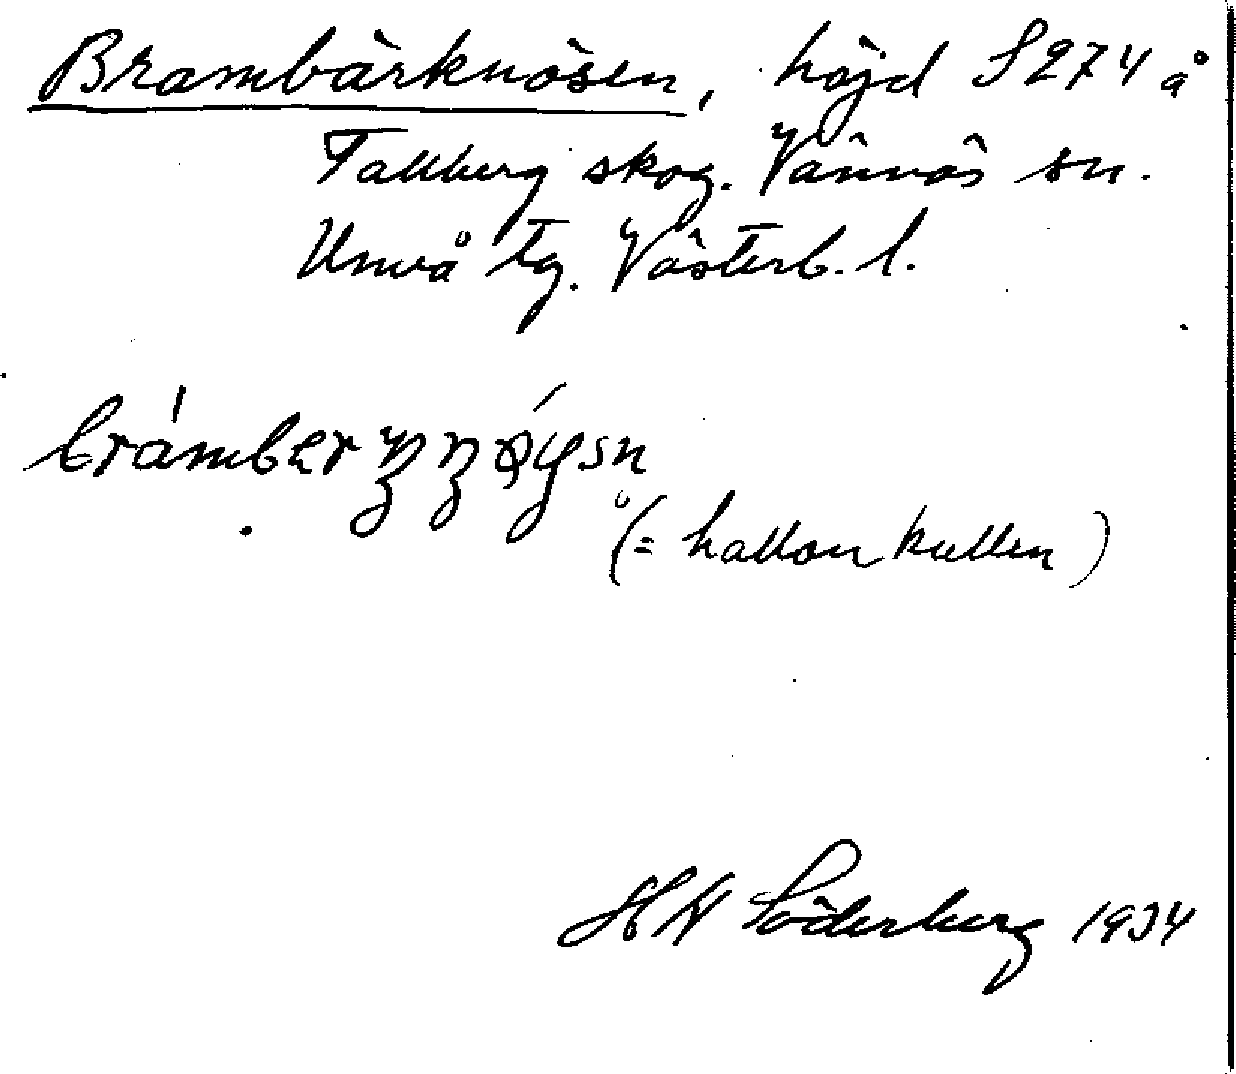 Brambärknösen, höjd S 274 å
Tallberg skog. Vännäs sn.
Umeå tg. Västerb. l.
(= hallonkullen)
H W Söderberg 1934